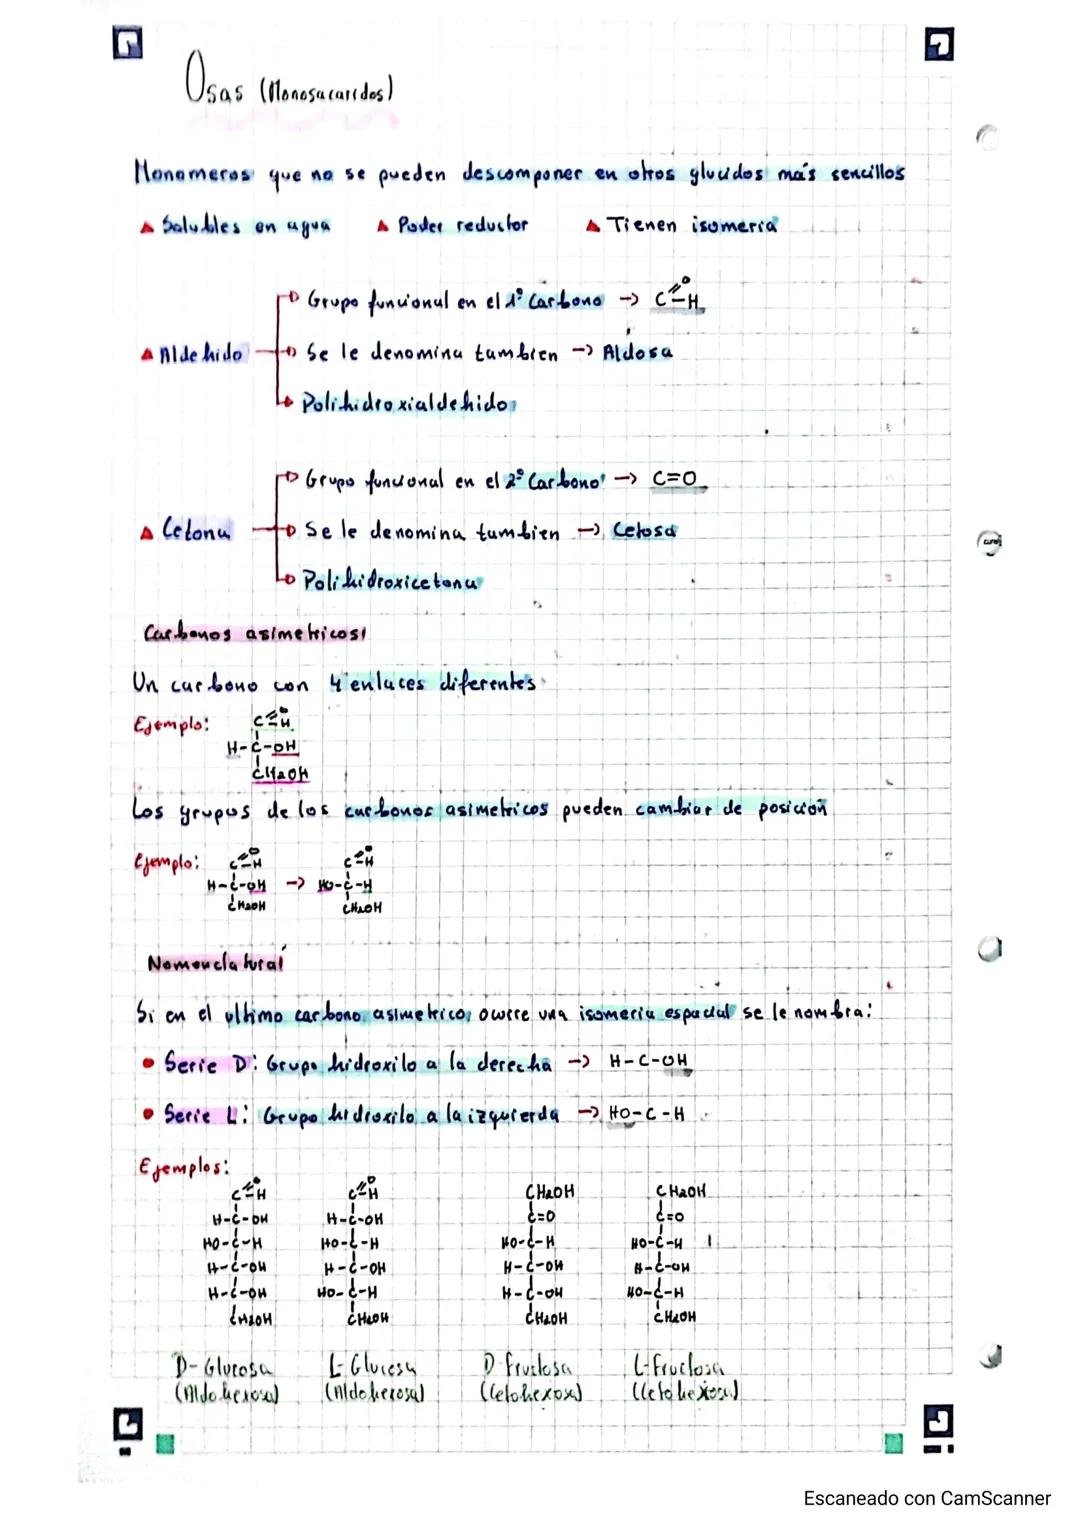 Osas (Monosacaridos)
Monomeros que no se pueden descomponer en otros glucidos más sencillos
Solubles en agua
Poder reductor
Tienen isomeria
Grupo funcional en el 1º Carbono → C=O-H
Aldehido
Se le denomina tambien → Aldosa
Polihidroxialdehido
Grupo funcional en el 2º Carbono → C=O
Cetona
Se le denomina tambien → Cetosa
Polihidroxicetona
Carbonos asimetricos
Un carbono con 4 enlaces diferentes
Ejemplo:
C=O-H
H-C-OH
CH2OH
Los grupos de los carbonos asimetricos pueden cambiar de posición
Ejemplo:
C=O-H C=O-H
H-C-OH → HO-C-H
CH2OH CH2OH
Nomenclatura
Si en el ultimo carbono asimetrico, ocurre una isomeria espacial se le nombra:
Serie D: Grupo hidroxilo a la derecha → H-C-OH
Serie L: Grupo hidroxilo a la izquierda → HO-C-H
Ejemplos:
C=O-H C=O-H CH2OH CH2OH
H-C-OH H-C-OH C=O C=O
HO-C-H HO-C-H HO-C-H HO-C-H
H-C-OH H-C-OH H-C-OH H-C-OH
H-C-OH HO-C-H H-C-OH HO-C-H
CH2OH CH2OH CH2OH CH2OH
D-Glucosa L-Glucosa D-Fructosa L-Fructosa
(Aldohexosa) (Aldohexosa) (Cetohexosa) (Cetohexosa)
Escaneado con CamScanner